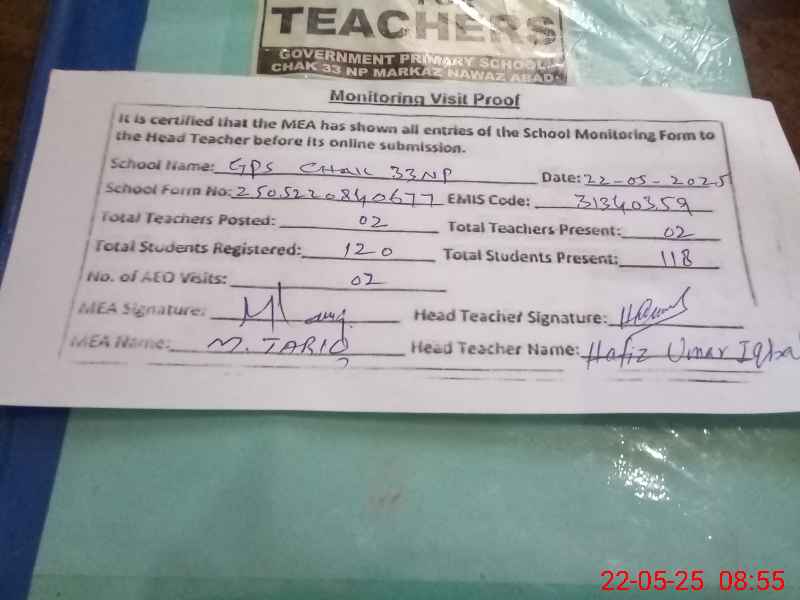 TEACHERS
GOVERNMENT PRIMARY SCHOOL
CHAK 33 NP MARKAZ NAWAZ ABAD
Monitoring Visit Proof
It is certified that the MEA has shown all entries of the School Monitoring Form to
the Head Teacher before its online submission.
School Name: GPS CHAK 33NP Date: 22-05-2025
School Form No: 2505220840677 EMIS Code: 31340359
Total Teachers Posted: 02 Total Teachers Present: 02
Total Students Registered: 120 Total Students Present: 118
No. of AEO Visits: 02
MEA Signature: Head Teacher Signature:
MEA Name: M. TARIQ Head Teacher Name: Hafiz Umar Iqbal
22-05-25 08:55